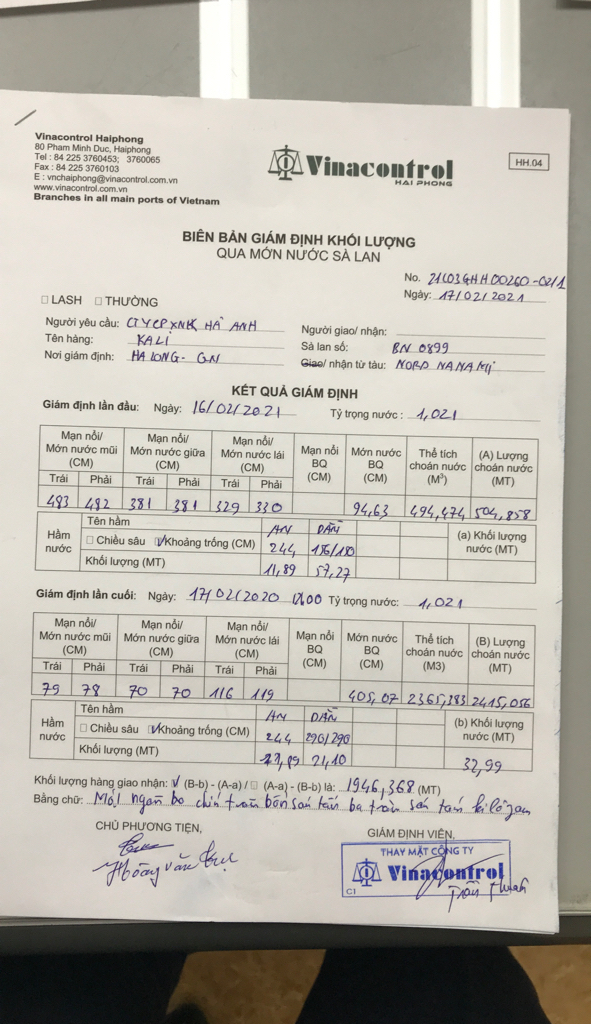 Vinacontrol Haiphong
80 Pham Minh Duc, Haiphong
Tel : 84 225 3760453; 3760065
Fax : 84 225 3760103
E : vnchaiphong@vinacontrol.com.vn
www.vinacontrol.com.vn
Branches in all main ports of Vietnam
Vinacontrol
HAI PHONG
HH.04
BIÊN BẢN GIÁM ĐỊNH KHỐI LƯỢNG
QUA MỚN NƯỚC SÀ LAN
No. 21L03GHH00260-02/1
Ngày: 17/02/2021
□ LASH □ THƯỜNG
Người yêu cầu: CTYCPXNK HÀ ANH
Người giao/ nhận:
Tên hàng: KALI
Sà lan số: BN 0899
Nơi giám định: HALONG - QN
Giao/ nhận từ tàu: NORD NANAMI
KẾT QUẢ GIÁM ĐỊNH
Giám định lần đầu: Ngày: 16/02/2021 Tỷ trọng nước : 1,021
Mạn nổi/ Mớn nước mũi (CM) Mạn nổi/ Mớn nước giữa (CM) Mạn nổi/ Mớn nước lái (CM) Mạn nổi BQ (CM) Mớn nước BQ (CM) Thể tích choán nước (M³) (A) Lượng choán nước (MT)
Trái Phải Trái Phải Trái Phải
483 482 381 381 329 330 94,63 494,474 504,858
Hầm nước Tên hầm AN DẰN (a) Khối lượng nước (MT)
□ Chiều sâu ☑ Khoảng trống (CM) 244 186/180
Khối lượng (MT) 11,89 57,27
Giám định lần cuối: Ngày: 17/02/2020 Tỷ trọng nước: 1,021
Mạn nổi/ Mớn nước mũi (CM) Mạn nổi/ Mớn nước giữa (CM) Mạn nổi/ Mớn nước lái (CM) Mạn nổi BQ (CM) Mớn nước BQ (CM) Thể tích choán nước (M3) (B) Lượng choán nước (MT)
Trái Phải Trái Phải Trái Phải
79 78 70 70 116 119 405,07 2365,383 2415,056
Hầm nước Tên hầm AN DẰN (b) Khối lượng nước (MT)
□ Chiều sâu ☑ Khoảng trống (CM) 244 290/290
Khối lượng (MT) 21,10 32,99
Khối lượng hàng giao nhận: ☑ (B-b) - (A-a) / □ (A-a) - (B-b) là: 1946,368 (MT)
Bằng chữ: Một ngàn chín trăm bốn sáu tấn ba trăm sáu tám kilôgam
CHỦ PHƯƠNG TIỆN,
GIÁM ĐỊNH VIÊN,
THAY MẶT CÔNG TY
Vinacontrol
C1
Hoàng văn
Trần